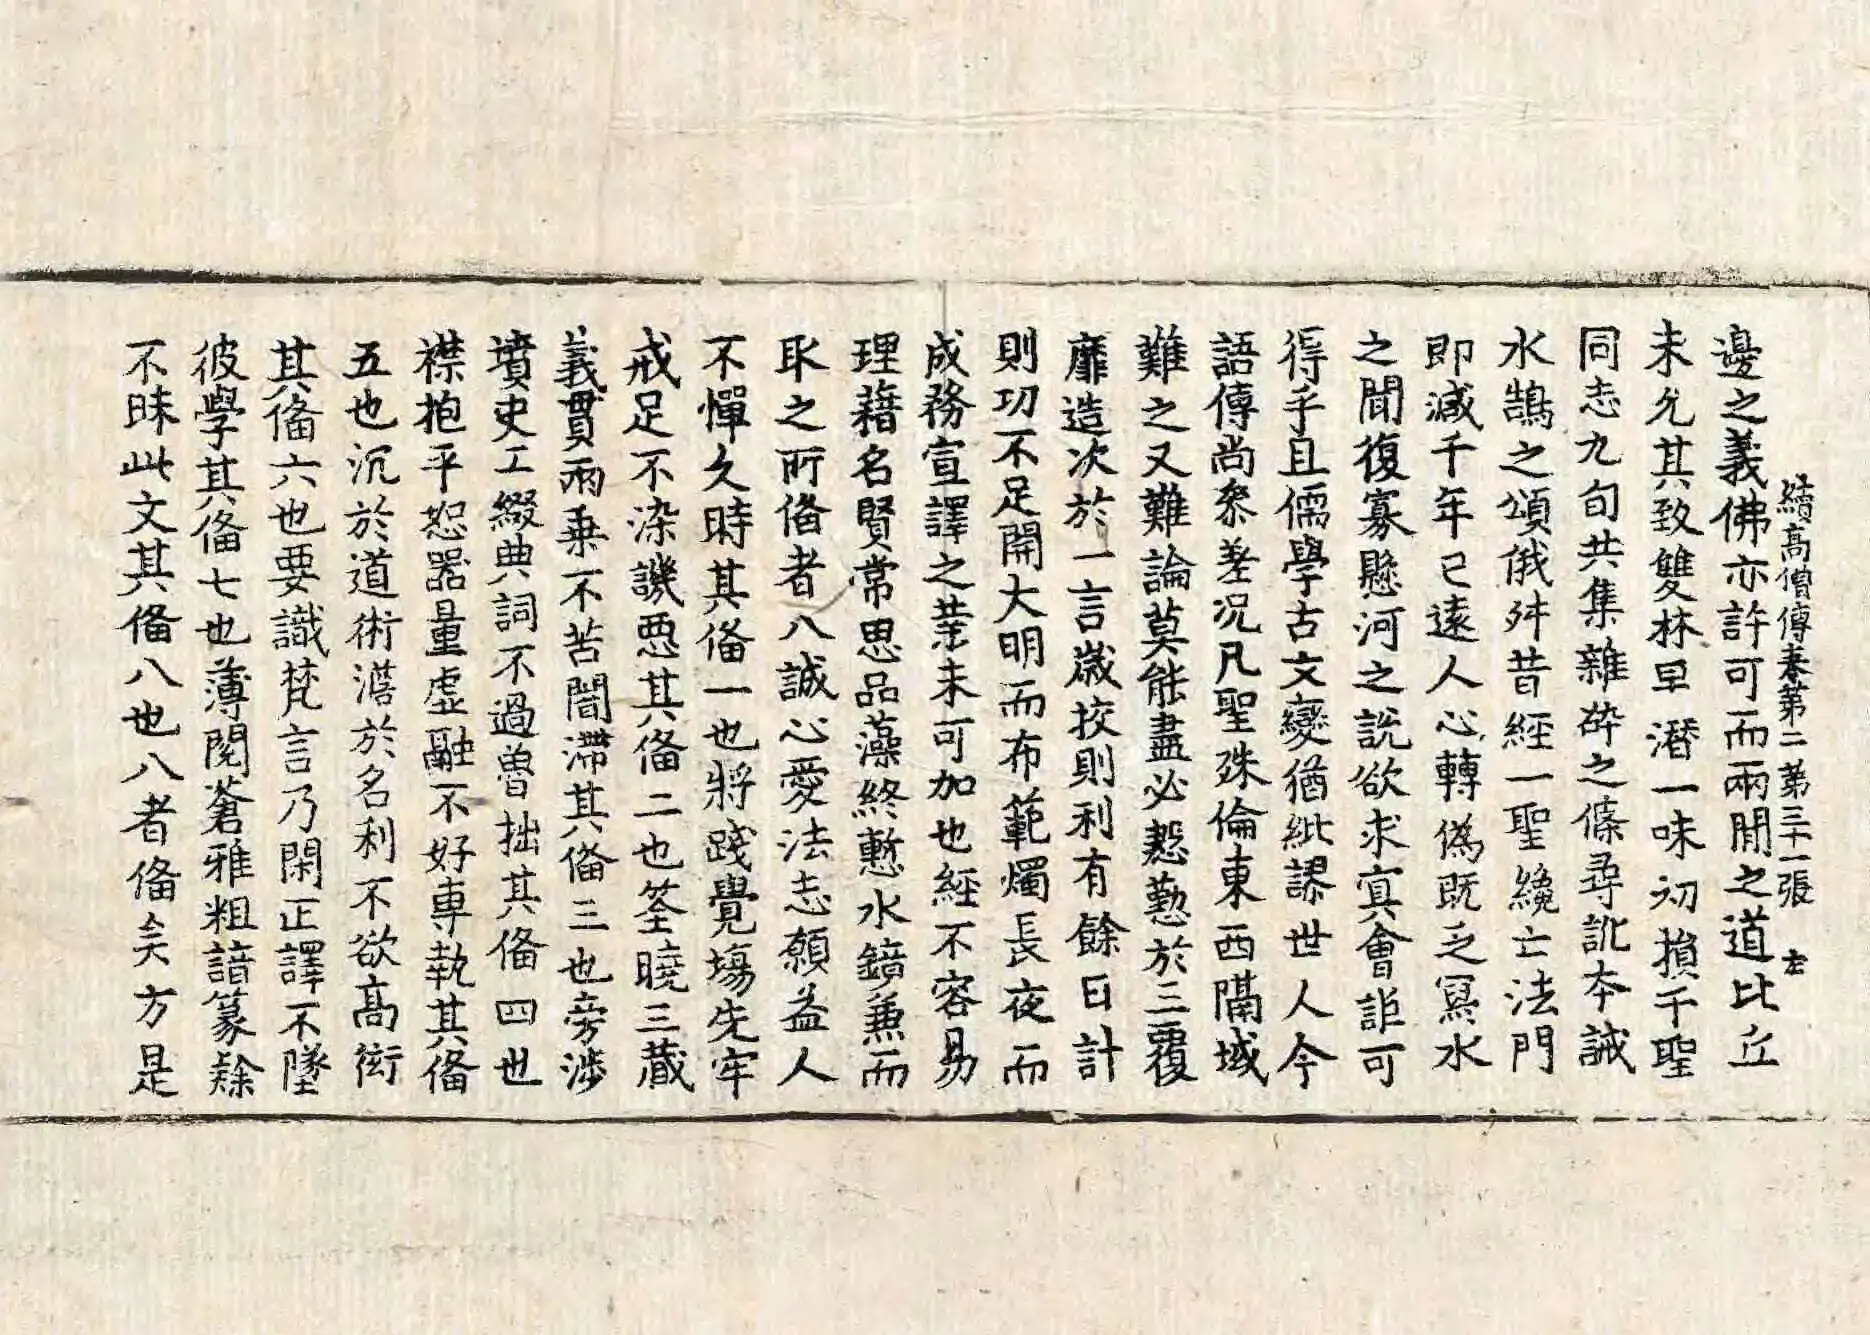 續高僧傳卷第二 第三十一張 左
邊之義佛亦許可而兩閒之道比丘
未允其致雙林早潛一味初損千聖
同志九旬共集雜碎之條尋訛本誡
水鵠之頌俄舛昔經一聖纔亡法門
即減千年已遠人心轉僞既乏寫水
之聞復寡懸河之說欲求冥會詎可
得乎且儒學古文變猶紕謬世人今
語傳尚參差況凡聖殊倫東西隔域
難之又難論莫能盡必慇懃於三覆
靡造次於一言歲挍則利有餘日計
則功不足開大明而布範燭長夜而
成務宣譯之業未可加也經不容易
理藉名賢常思品藻終慙水鏡兼而
取之所俻者八誠心愛法志願益人
不憚久時其俻一也將踐覺場先牢
戒足不染譏惡其俻二也筌曉三藏
義貫兩乘不苦闇滯其俻三也旁涉
墳史工綴典詞不過魯拙其俻四也
襟抱平恕器量虛融不好專執其俻
五也沉於道術澹於名利不欲高衒
其俻六也要識梵言乃閑正譯不墜
彼學其俻七也薄閱蒼雅粗諳篆隸
不昧此文其俻八也八者俻矣方是